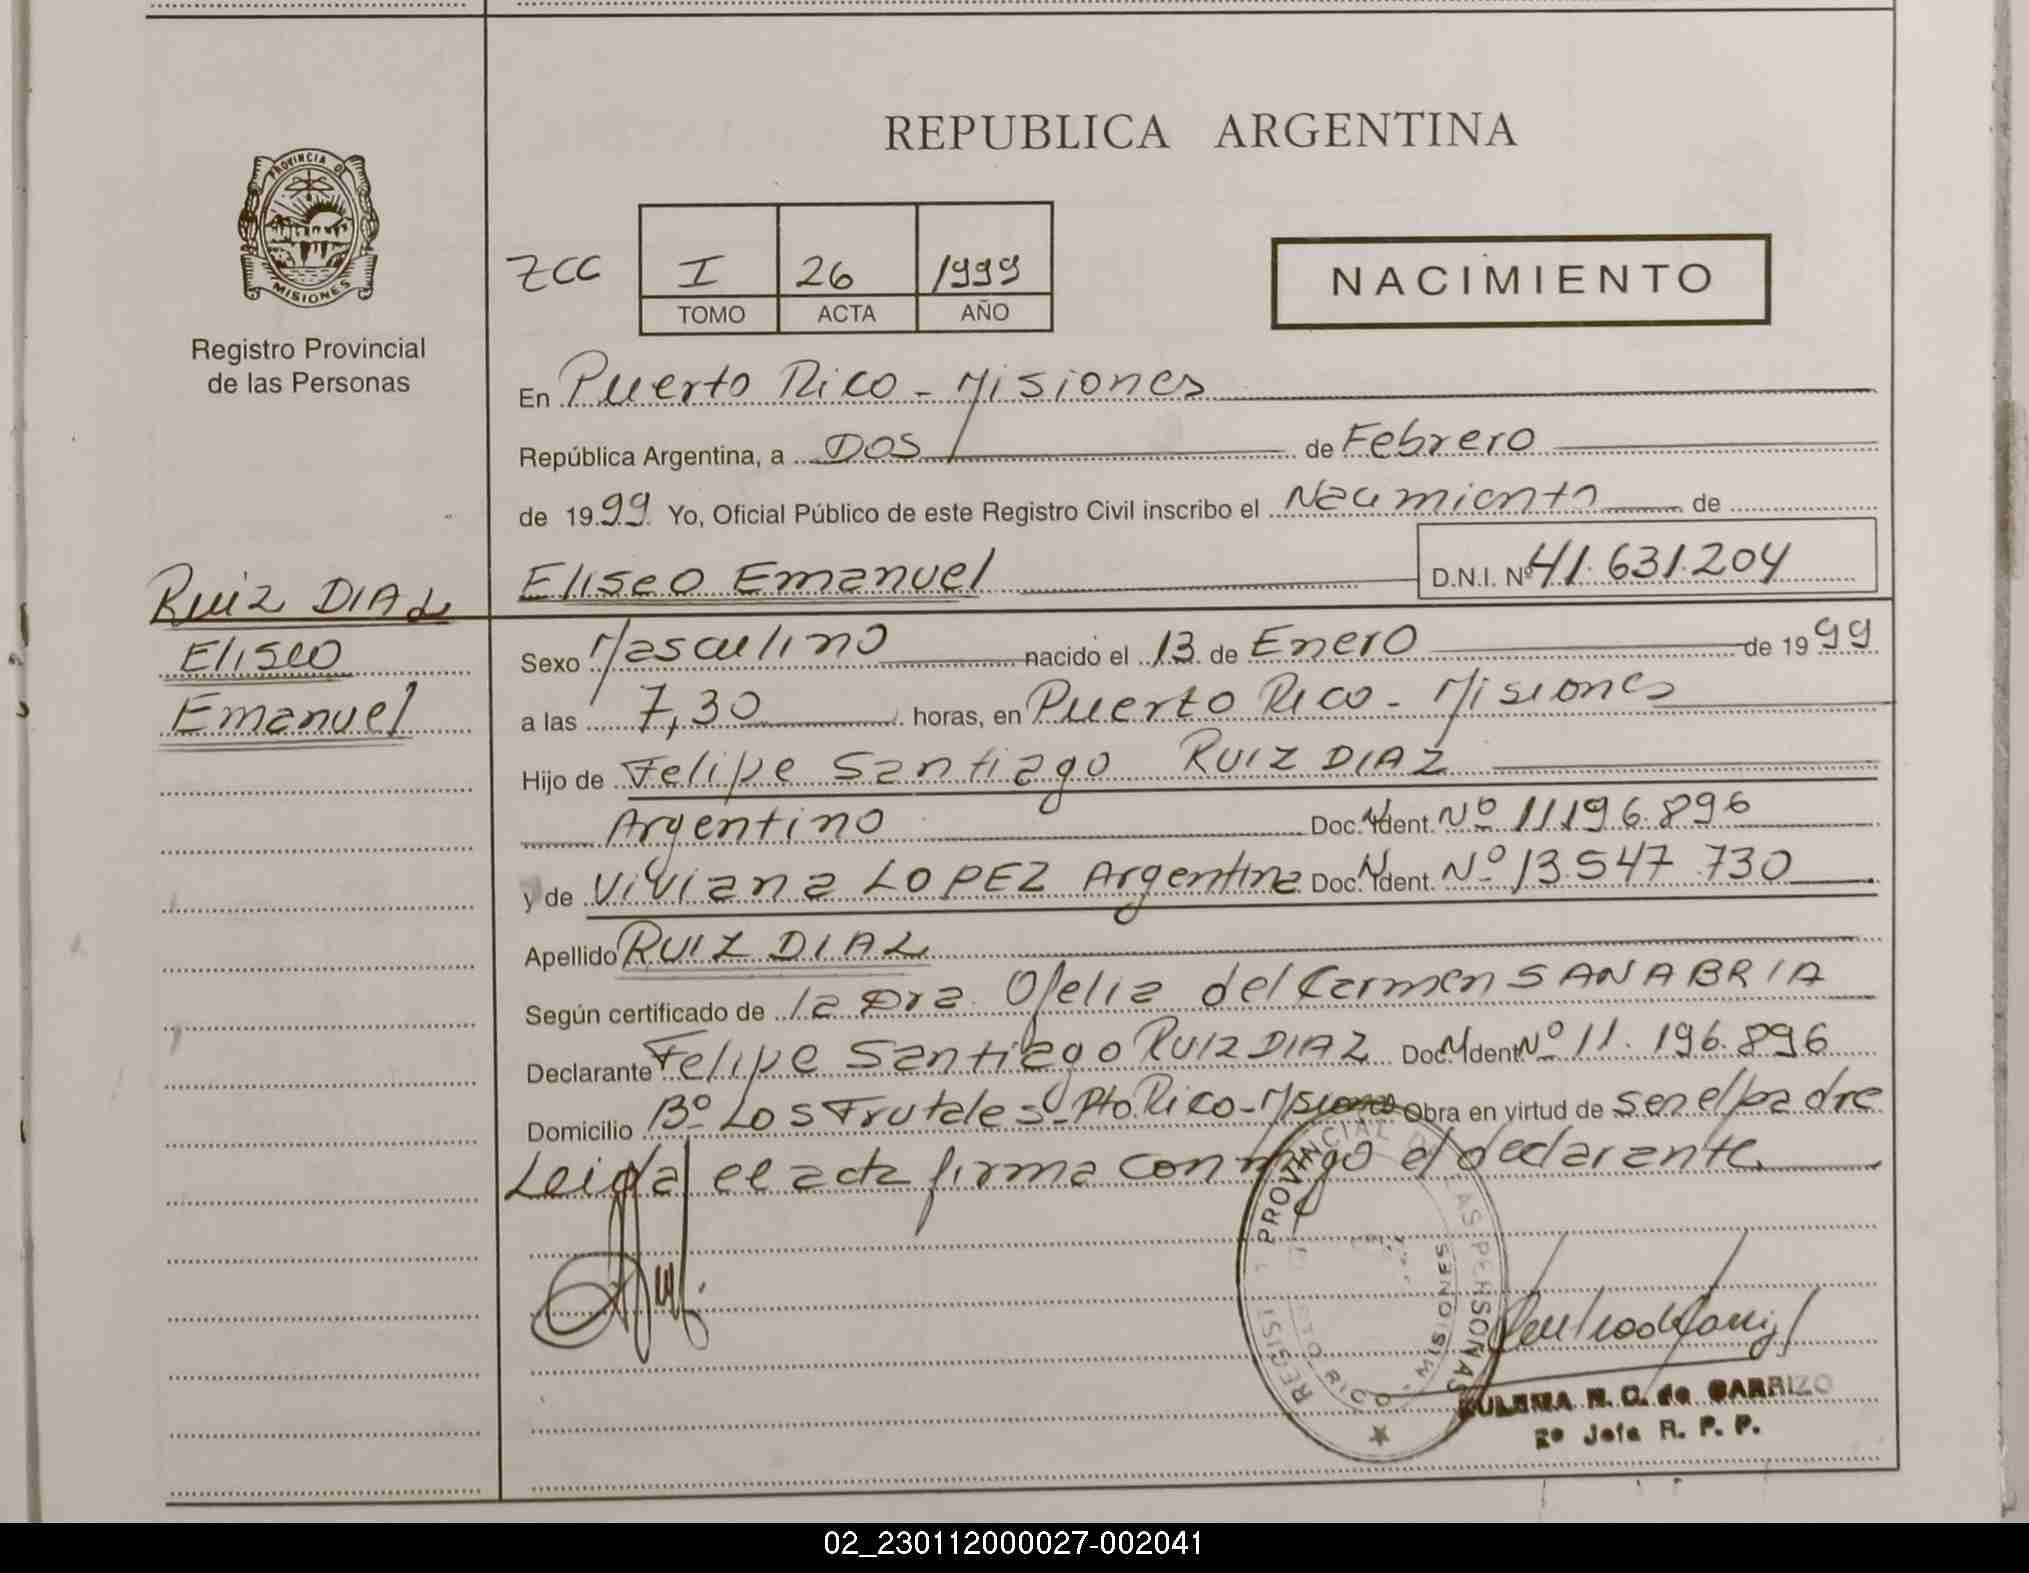 REPUBLICA ARGENTINA
PROVINCIA DE
MISIONES
Registro Provincial
de las Personas
ZCC I 26 1999
TOMO ACTA AÑO
NACIMIENTO
En Puerto Rico - Misiones
República Argentina, a DOS de Febrero
de 1999 Yo, Oficial Público de este Registro Civil inscribo el Nacimiento de
Eliseo Emanuel D.N.I. Nº 41.631.204
Ruiz DIAZ
Eliseo
Emanuel
Sexo Masculino nacido el 13 de Enero de 1999
a las 7,30 horas, en Puerto Rico - Misiones
Hijo de Felipe Santiago RUIZ DIAZ
Argentino Doc. N. Ident. Nº 11.196.896
y de Viviana LOPEZ Argentina Doc. N. Ident. Nº 13.547.730
Apellido RUIZ DIAZ
Según certificado de la Dra. Ofelia del Carmen SANABRIA
Declarante Felipe Santiago RUIZ DIAZ Doc. N. Ident. Nº 11.196.896
Domicilio Bº Los Frutales - Pto. Rico - Misiones Obra en virtud de ser el padre
Leida el acta firma conmigo el declarante
REGIST PROVINCIAL DE LAS PERSONAS
PTO. RICO - MISIONES
ZULEMA N. C. de CARRIZO
2º Jefa R. P. P.
02_230112000027-002041